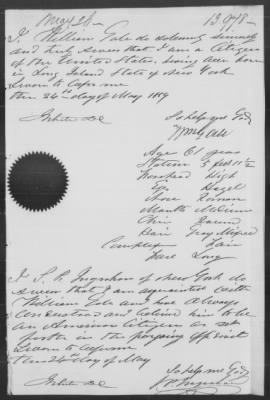 May 26
13978
I, William Gale do solemnly
and truly swear that I am a Citizen
of the United States, having been born
in Long Island State of New York
Sworn to before me
this 24th day of May 1889
So help me God
Wm Gale
Age 61 years
Stature 5 feet 11 1/2
Forehead High
Eye Hazel
Nose Roman
Mouth Medium
Chin Round
Hair Gray Mixed
Complex Fair
Face Long
I, S. R. of New York do
swear that I am acquainted with
William Gale and have Always
understood and believed him to be
an American Citizen as set
forth in the foregoing affidavit
Sworn to before me
this 24th day of May
So help me God